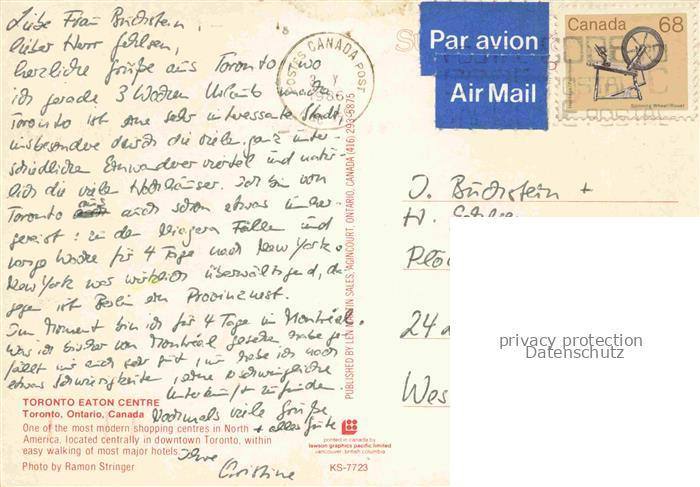 Liebe Frau Büchstein,
lieber Herr Gehlsen,
herzliche Grüße aus Toronto, wo
ich gerade 3 Wochen Urlaub mache.
Toronto ist eine sehr interessante Stadt,
insbesondere durch die vielen ganz unter-
schiedlichen Einwandererviertel und natür-
lich die viele Hochhäuser. Ich bin von
Toronto aus auch schon etwas umher-
gereist: zu den Niagara Fällen und
vorige Woche für 4 Tage nach New York.
New York war wirklich überwältigend, da-
gegen ist Berlin ein Provinznest.
Im Moment bin ich für 4 Tage in Montréal.
Was ich bisher von Montréal gesehen habe ge-
fällt mir auch sehr gut, nur habe ich noch
etwas Schwierigkeiten, eine erschwingliche
Unterkunft zu finden.
Nochmals viele Grüße
+ alles Gute
Ihre
Christine
TORONTO EATON CENTRE
Toronto, Ontario, Canada
One of the most modern shopping centres in North
America, located centrally in downtown Toronto, within
easy walking of most major hotels.
Photo by Ramon Stringer
PUBLISHED BY LEN MARTIN SALES, AGINCOURT, ONTARIO, CANADA (416) 293-8875
printed in canada by
lawson graphics pacific limited
vancouver, british columbia
KS-7723
CANADA POST
1986
Par avion
Air Mail
Canada 68
Spinning Wheel/Rouet
J. Büchstein +
H.
24
Wes
privacy protection
Datenschutz